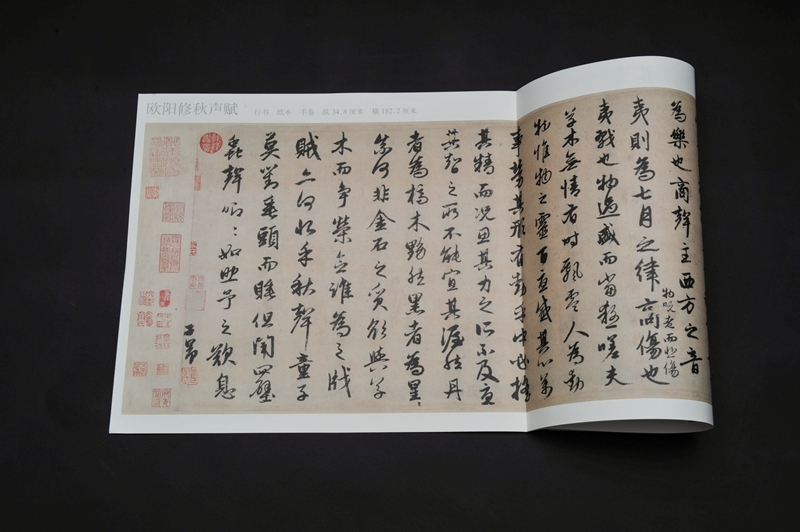 欧阳修秋声赋 行书 纸本 手卷 纵34.8厘米 横182.2厘米
為樂也商聲主西方之音
夷則為七月之律商傷也
物既老而悲傷
夷戮也物過盛而當殺嗟夫
草木無情有時飄零人為動
物惟物之靈百憂感其心萬
事勞其形有動乎中必搖
其精而況思其力之所不及憂
其智之所不能宜其渥然丹
者為槁木黟然黑者為星〻
奈何非金石之質欲與草
木而爭榮念誰為之戕
賊亦何恨乎秋聲童子
莫對垂頭而睡但聞四壁
蟲聲唧〻如助予之歎息
子昂